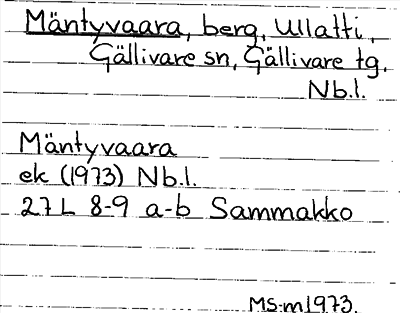 Mäntyvaara, berg, Ullatti,
Gällivare sn, Gällivare tg.
Nb.l.
Mäntyvaara
ek (1973) Nb.l.
27L 8-9 a-b Sammakko
MS:m1973.